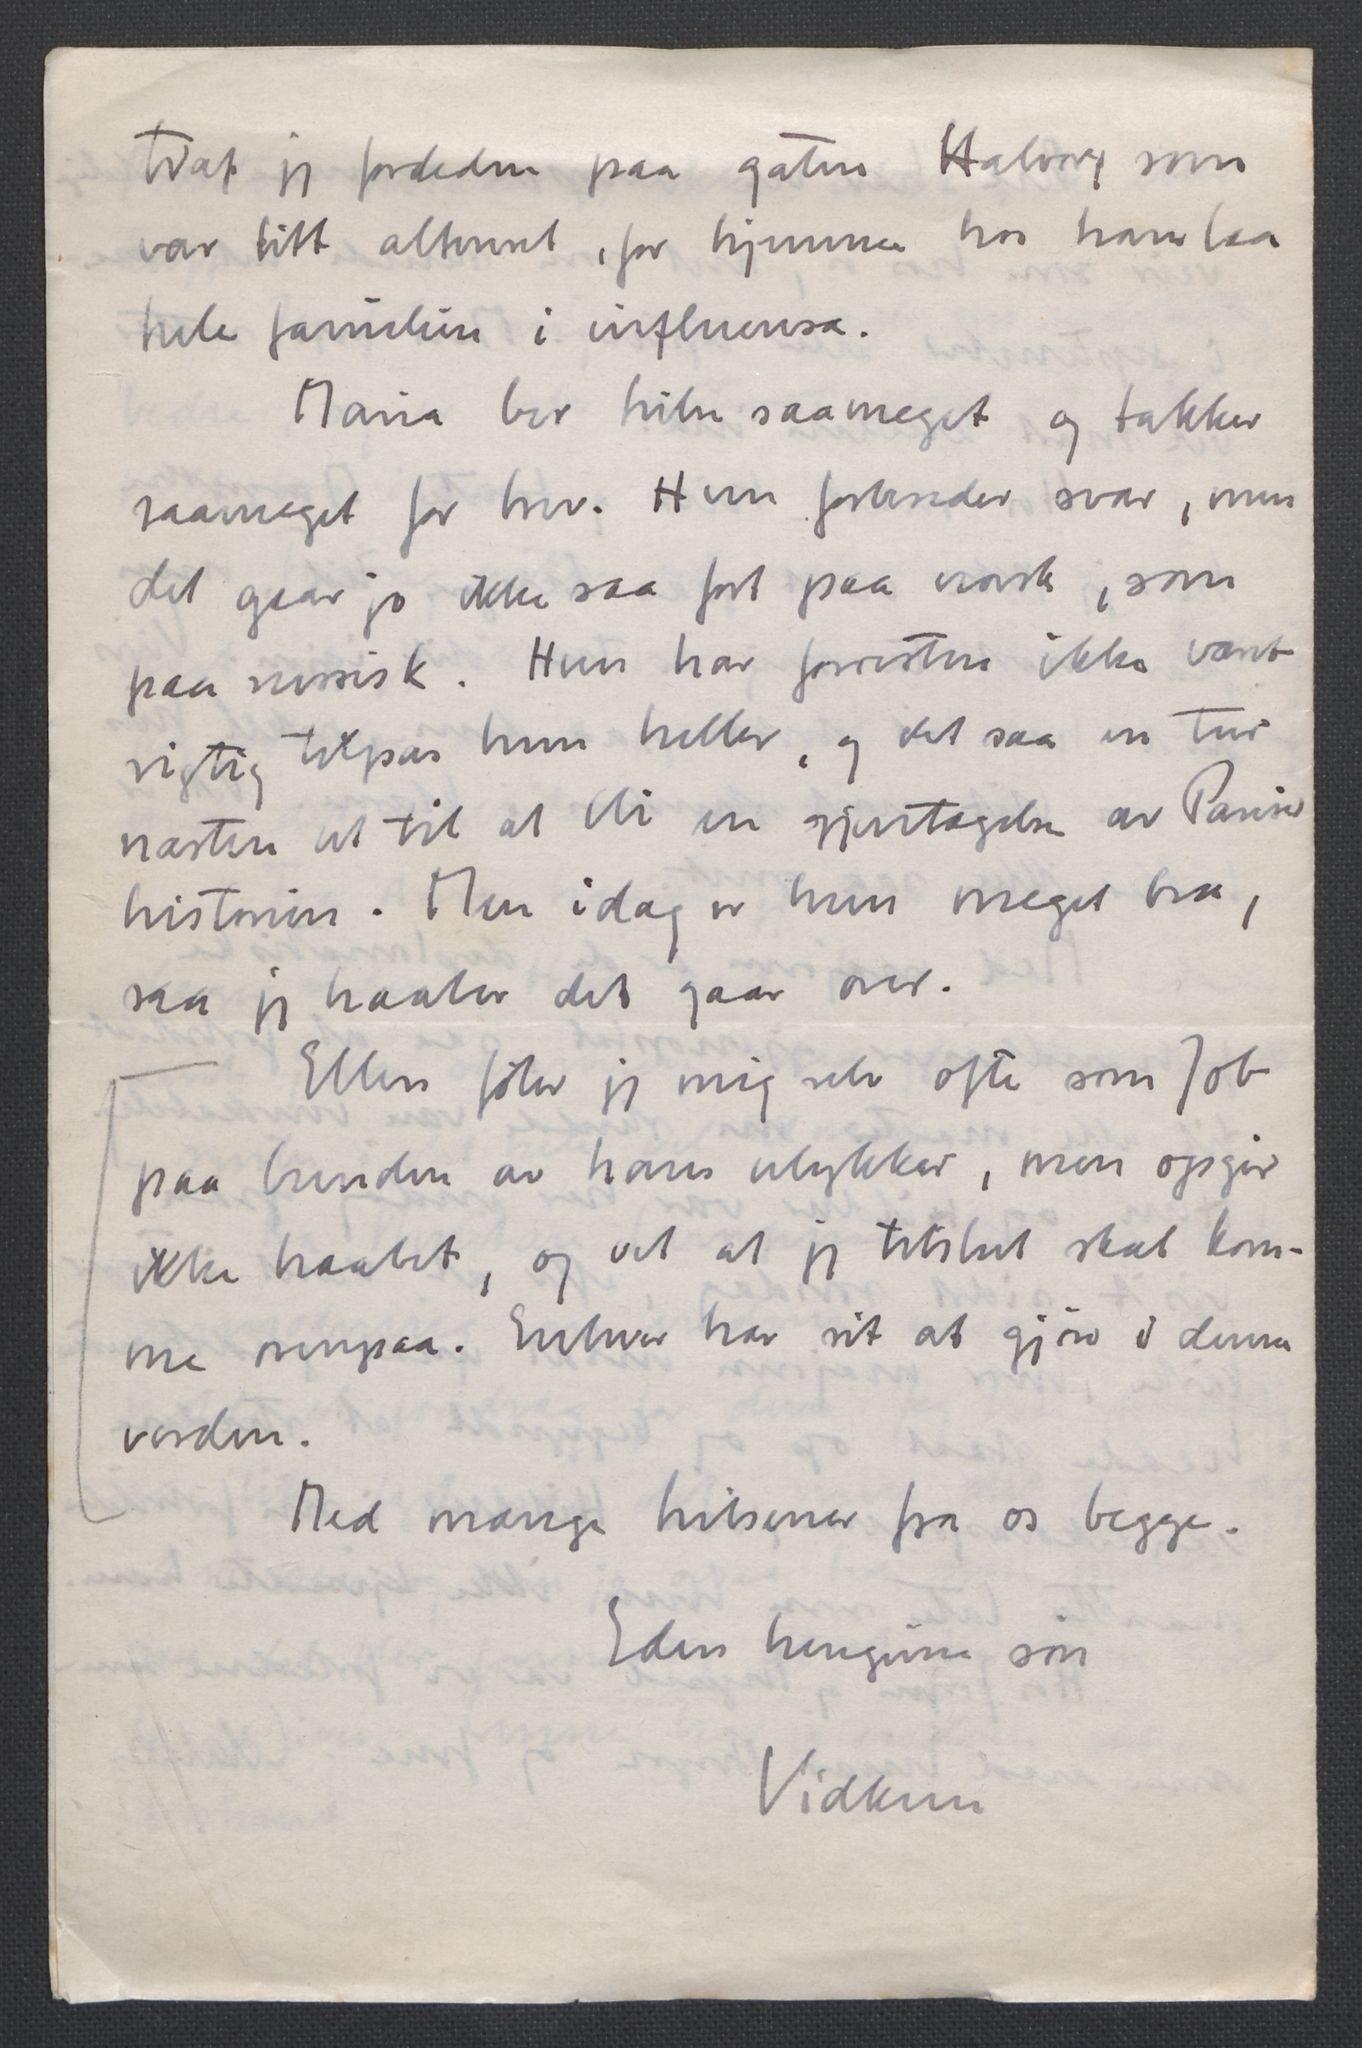 traf jeg forleden paa gaten Halvor, som
var litt alteret, for hjemme hos ham laa
hele familien i influensa.
Maria ber hilse saameget og takker
saameget for brev. Hun forbereder svar, men
det gaar jo ikke saa fort paa norsk, som
paa russisk. Hun har forresten ikke vært
rigtig tilpas hun heller, og det saa en tur
næsten ut til at bli en gjentagelse av Pariser
historien. Men idag er hun meget bra,
saa jeg haaber det gaar over.
Ellers føler jeg mig selv ofte som Job
paa bunden av hans ulykker, men opgir
ikke haabet, og vet at jeg tilslut skal kom-
me ovenpaa. Enhver har sit at gjøre i denne
verden.
Med mange hilsener fra os begge.
Eders hengivne søn
Vidkun